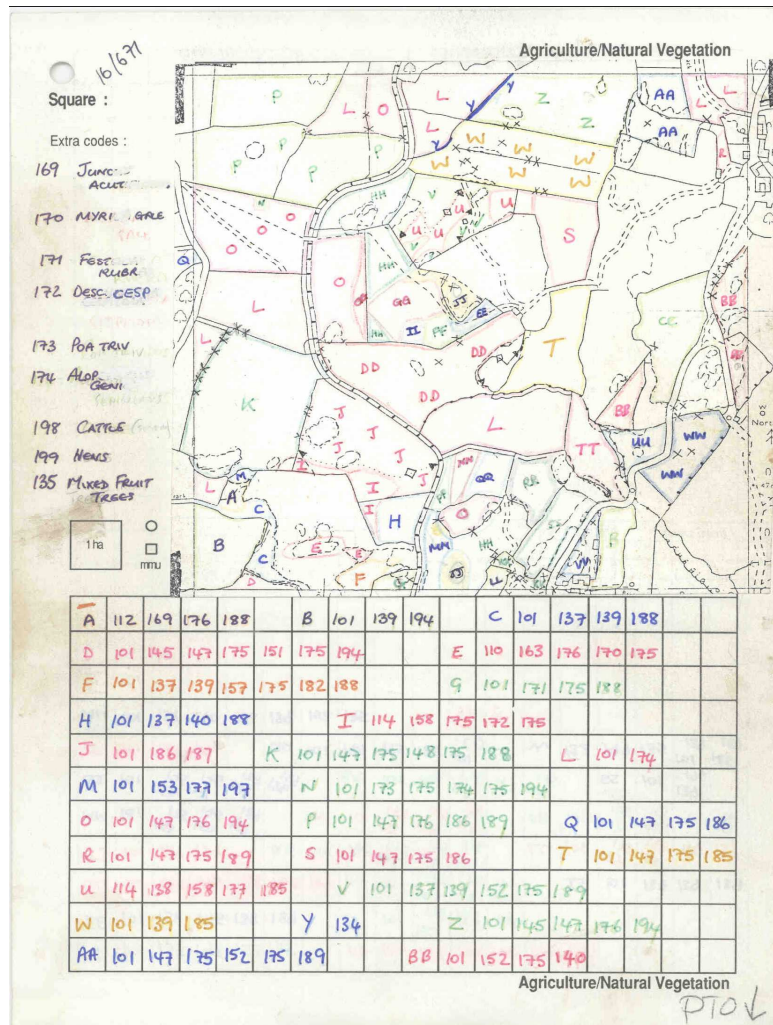 16/671
Agriculture/Natural Vegetation
Square :
Extra codes :
169 JUNC ACUT
170 MYRI GALE
171 FEST RUBR
172 DESC CESP
173 POA TRIV
174 ALOP GENI
198 CATTLE
199 HENS
135 MIXED FRUIT TREES
1 ha
mmu
P L O L Y Y Z Z AA L L
P P L Y W W W W W AA R
O O O HH V U U U U V V S
Q L O HH GG JJ EE II FF HH T CC BB
L K DD DD DD R L BB
J J J J J I I I TT UU WW WW
L A M C B C H NN QQ RR O
E E F D MM HH VV
A 112 169 176 188 B 101 139 194 C 101 137 139 188
D 101 145 147 175 151 175 194 E 110 163 176 170 175
F 101 137 139 157 175 182 188 G 101 171 175 188
H 101 137 140 188 I 114 158 175 172 175
J 101 186 187 K 101 147 175 148 175 188 L 101 174
M 101 153 177 197 N 101 173 175 174 175 194
O 101 147 176 194 P 101 147 176 186 189 Q 101 147 175 186
R 101 147 175 189 S 101 147 175 186 T 101 147 175 185
U 114 138 158 177 185 V 101 137 139 152 175 189
W 101 139 185 Y 134 Z 101 145 147 176 194
AA 101 147 175 152 175 189 BB 101 152 175 140
Agriculture/Natural Vegetation
PTO ↓